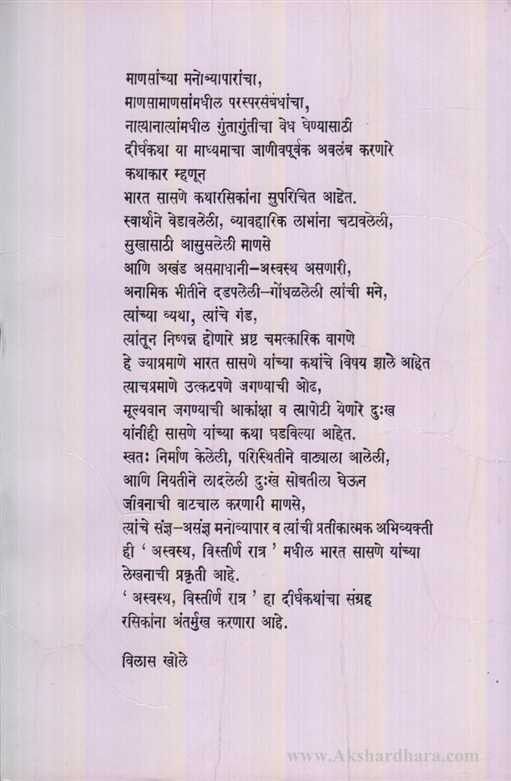 माणसांच्या मनोव्यापारांचा,
माणसामाणसांमधील परस्परसंबंधांचा,
नात्यानात्यांमधील गुंतागुंतीचा वेध घेण्यासाठी
दीर्घकथा या माध्यमाचा जाणीवपूर्वक अवलंब करणारे
कथाकार म्हणून
भारत सासणे कथारसिकांना सुपरिचित आहेत.
स्वार्थाने वेडावलेली, व्यावहारिक लाभांना चटावलेली,
सुखासाठी आसुसलेली माणसे
आणि अखंड असमाधानी–अस्वस्थ असणारी,
अनामिक भीतीने दडपलेली–गोंधळलेली त्यांची मने,
त्यांच्या व्यथा, त्यांचे गंड,
त्यांतून निष्पन्न होणारे भ्रष्ट चमत्कारिक वागणे
हे ज्याप्रमाणे भारत सासणे यांच्या कथांचे विषय झाले आहेत
त्याचप्रमाणे उत्कटपणे जगण्याची ओढ,
मूल्यवान जगण्याची आकांक्षा व त्यापोटी येणारे दुःख
यांनीही सासणे यांच्या कथा घडविल्या आहेत.
स्वतः निर्माण केलेली, परिस्थितीने वाट्याला आलेली,
आणि नियतीने लादलेली दुःखे सोबतीला घेऊन
जीवनाची वाटचाल करणारी माणसे,
त्यांचे संज्ञ–असंज्ञ मनोव्यापार व त्यांची प्रतीकात्मक अभिव्यक्ती
ही ‘ अस्वस्थ, विस्तीर्ण रात्र ’ मधील भारत सासणे यांच्या
लेखनाची प्रकृती आहे.
‘ अस्वस्थ, विस्तीर्ण रात्र ’ हा दीर्घकथांचा संग्रह
रसिकांना अंतर्मुख करणारा आहे.
विलास खोले
www.Akshardhara.com